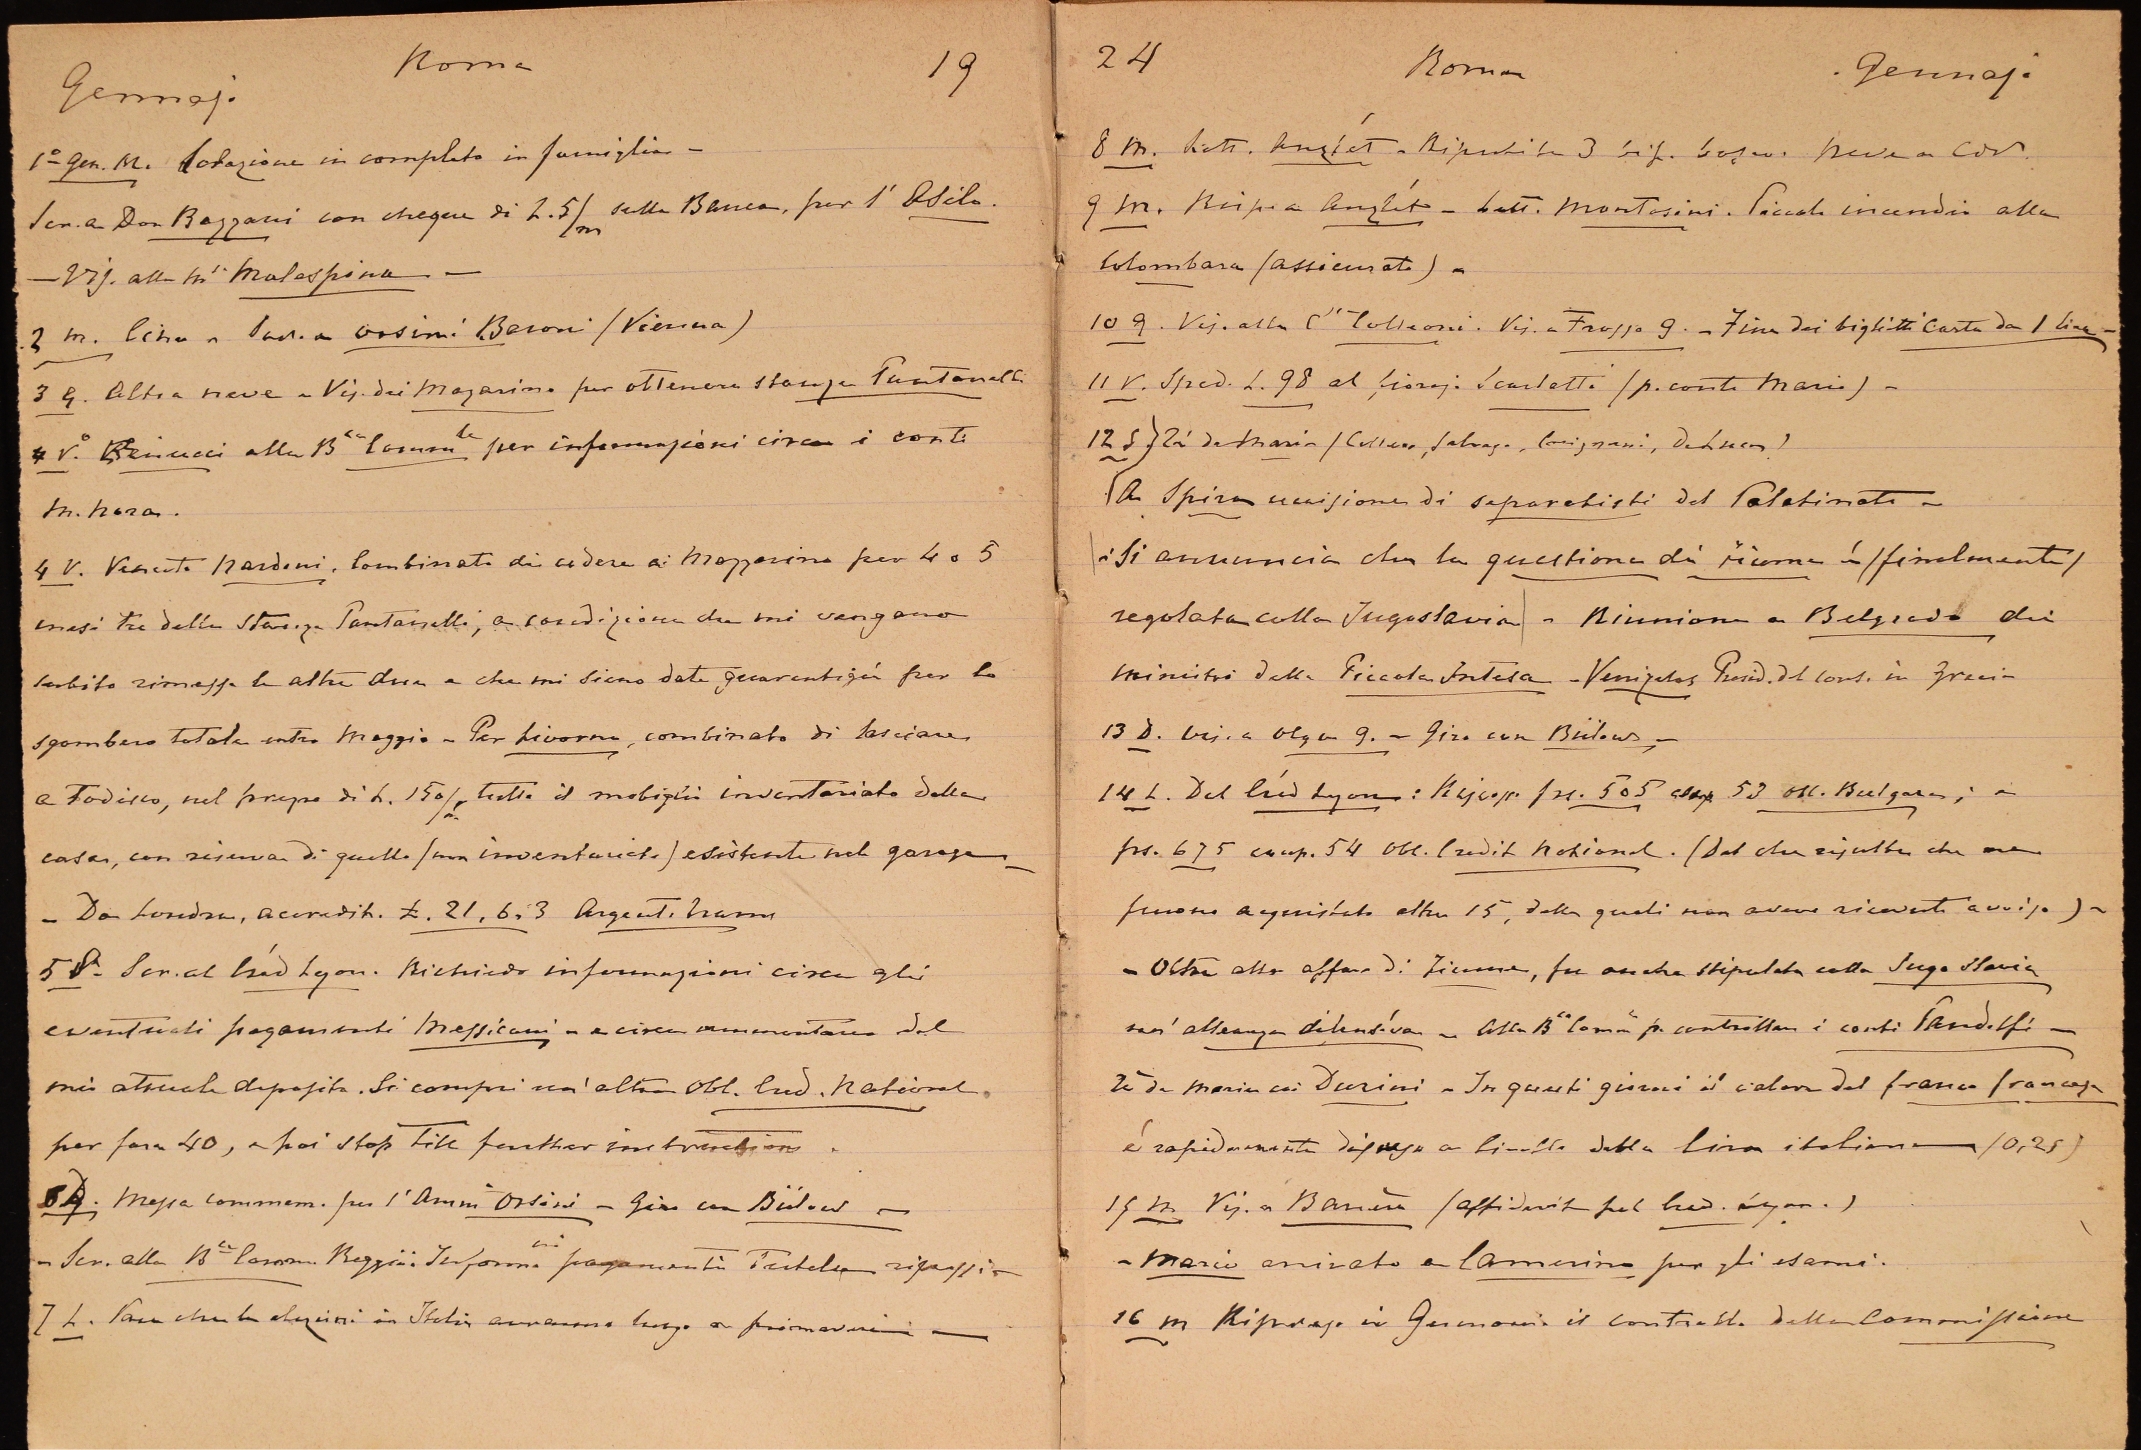 Gennajo Roma 19
1º Gen. M. Colazione in completo in famiglia -
Scr. a Don Bazzani con cheque di L. 5/m sulla Banca, per l'Asilo.
- Vis. alla Mˢᵃ Malaspina -
2 m. Orsini Baroni (Vienna)
3 G. Altra neve - Vis. dei Mazarino per ottenere stanza Pantanelli
4 V. alla Bᶜᵃ Commˡᵉ per informazioni circa i conti
M. Nora.
4 V. Venuto Nardoni. Combinato di cedere ai Mazzarino per 4 o 5
mesi tre delle stanze Pantanelli, a condizione che mi vengano
subito rimesse le altre due e che mi sieno date guarentigie per lo
sgombero totale entro Maggio - Per Livorno, combinato di lasciare
a Fodisco, nel prezzo di L. 150/m tutto il mobiglio inventariato della
casa, con riserva di quello (non inventariato) esistente nel garage -
- Da Londra, accredit. £. 21.6.3 Argent. Tram
5 S. Scr. al Créd Lyon. Richiedo informazioni circa gli
eventuali pagamenti Messicani - e circa ammontare del
mio attuale deposito. Si compri un'altra Obl. Cred. National
per fare 40, e poi stop till further instructions.
6 D. Messa commem. per l'Ammº Orsini - Giro con Bülow -
- Scr. alla Bᶜᵃ Comm. Reggio. Informⁿⁱ pagamenti
7 L. Pare che le elezioni in Italia avranno luogo a primavera -
24 Roma Gennajo
8 M. Lett. Anzlét - Neve a
9 M. Risp. a Anzlét - Lett. Montesini. Piccolo incendio alla
Colombara (assicurato) -
10 G. Vis. alla Cˢˢᵃ Colleoni. Vis. a Frasso G. - Fine dei biglietti carta da 1 lira -
11 V. Sped. L. 98 al Scarlatti (p. conto Mario) -
12 S Tè da Maria (Colleoni, Salvago, De Luca)
A Spira uccisione di separatisti del Palatinato -
Si annuncia che la questione di Fiume è (finalmente)
regolata colla Jugoslavia - Riunione a Belgrado dei
ministri della Piccola Intesa - Venizelos Presid. del Cons. in Grecia
13 D. Vis. a Olga G. - Giro con Bülow -
14 L. Dal Créd Lyon: frs. 505 coup 53 obl. Bulgare; e
frs. 675 coup. 54 Obl. Credit National. (Dal che risulta che ne
furono acquistate altre 15, delle quali non avevo ricevuto avviso) -
- Oltre allo affare di Fiume, fu anche stipulata colla Jugo Slavia
un'alleanza difensiva - Alla Bᶜᵃ Comˡᵉ p. controllare i conti Pandolfi -
Tè da Maria coi Durini - In questi giorni il valore del franco francese
è rapidamente disceso a livello della lira italiana (0,25)
15 M Vis. a Barrère (affidavit pel Cred. Lyon.)
- Mario arrivato a Camerino per gli esami.
16 M Riprese in Germania il controllo della Commissione